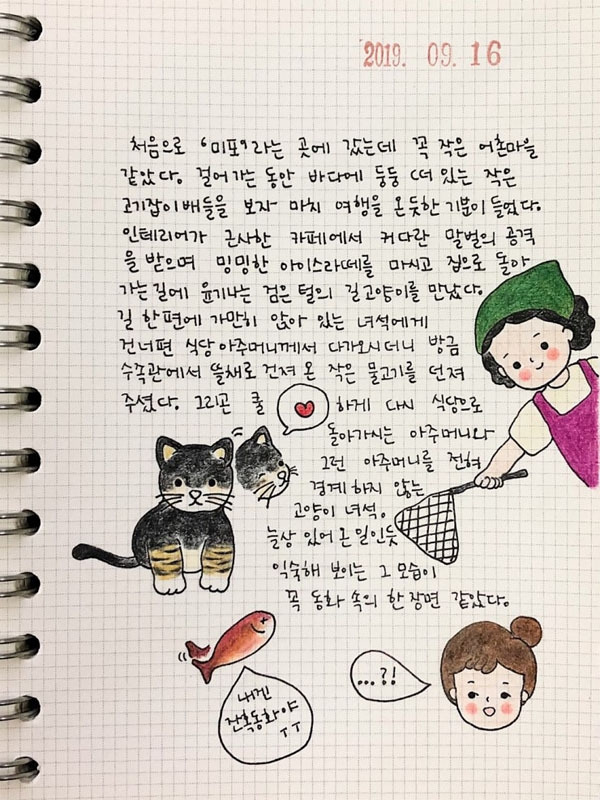 2019. 09. 16
처음으로 '미포'라는 곳에 갔는데 꼭 작은 어촌마을
같았다. 걸어가는 동안 바다에 둥둥 떠 있는 작은
고기잡이배들을 보자 마치 여행을 온듯한 기분이 들었다.
인테리어가 근사한 카페에서 커다란 말벌의 공격
을 받으며 밍밍한 아이스라떼를 마시고 집으로 돌아
가는 길에 윤기나는 검은 털의 길고양이를 만났다.
길 한편에 가만히 앉아 있는 녀석에게
건너편 식당 아주머니께서 다가오시더니 방금
수족관에서 뜰채로 건져 온 작은 물고기를 던져
주셨다. 그리곤 쿨하게 다시 식당으로
돌아가시는 아주머니와
그런 아주머니를 전혀
경계하지 않는
고양이 녀석.
늘상 있어 온 일인듯
익숙해 보이는 그 모습이
꼭 동화 속의 한 장면 같았다.
내겐
잔혹동화야
ㅜㅜ
...?!